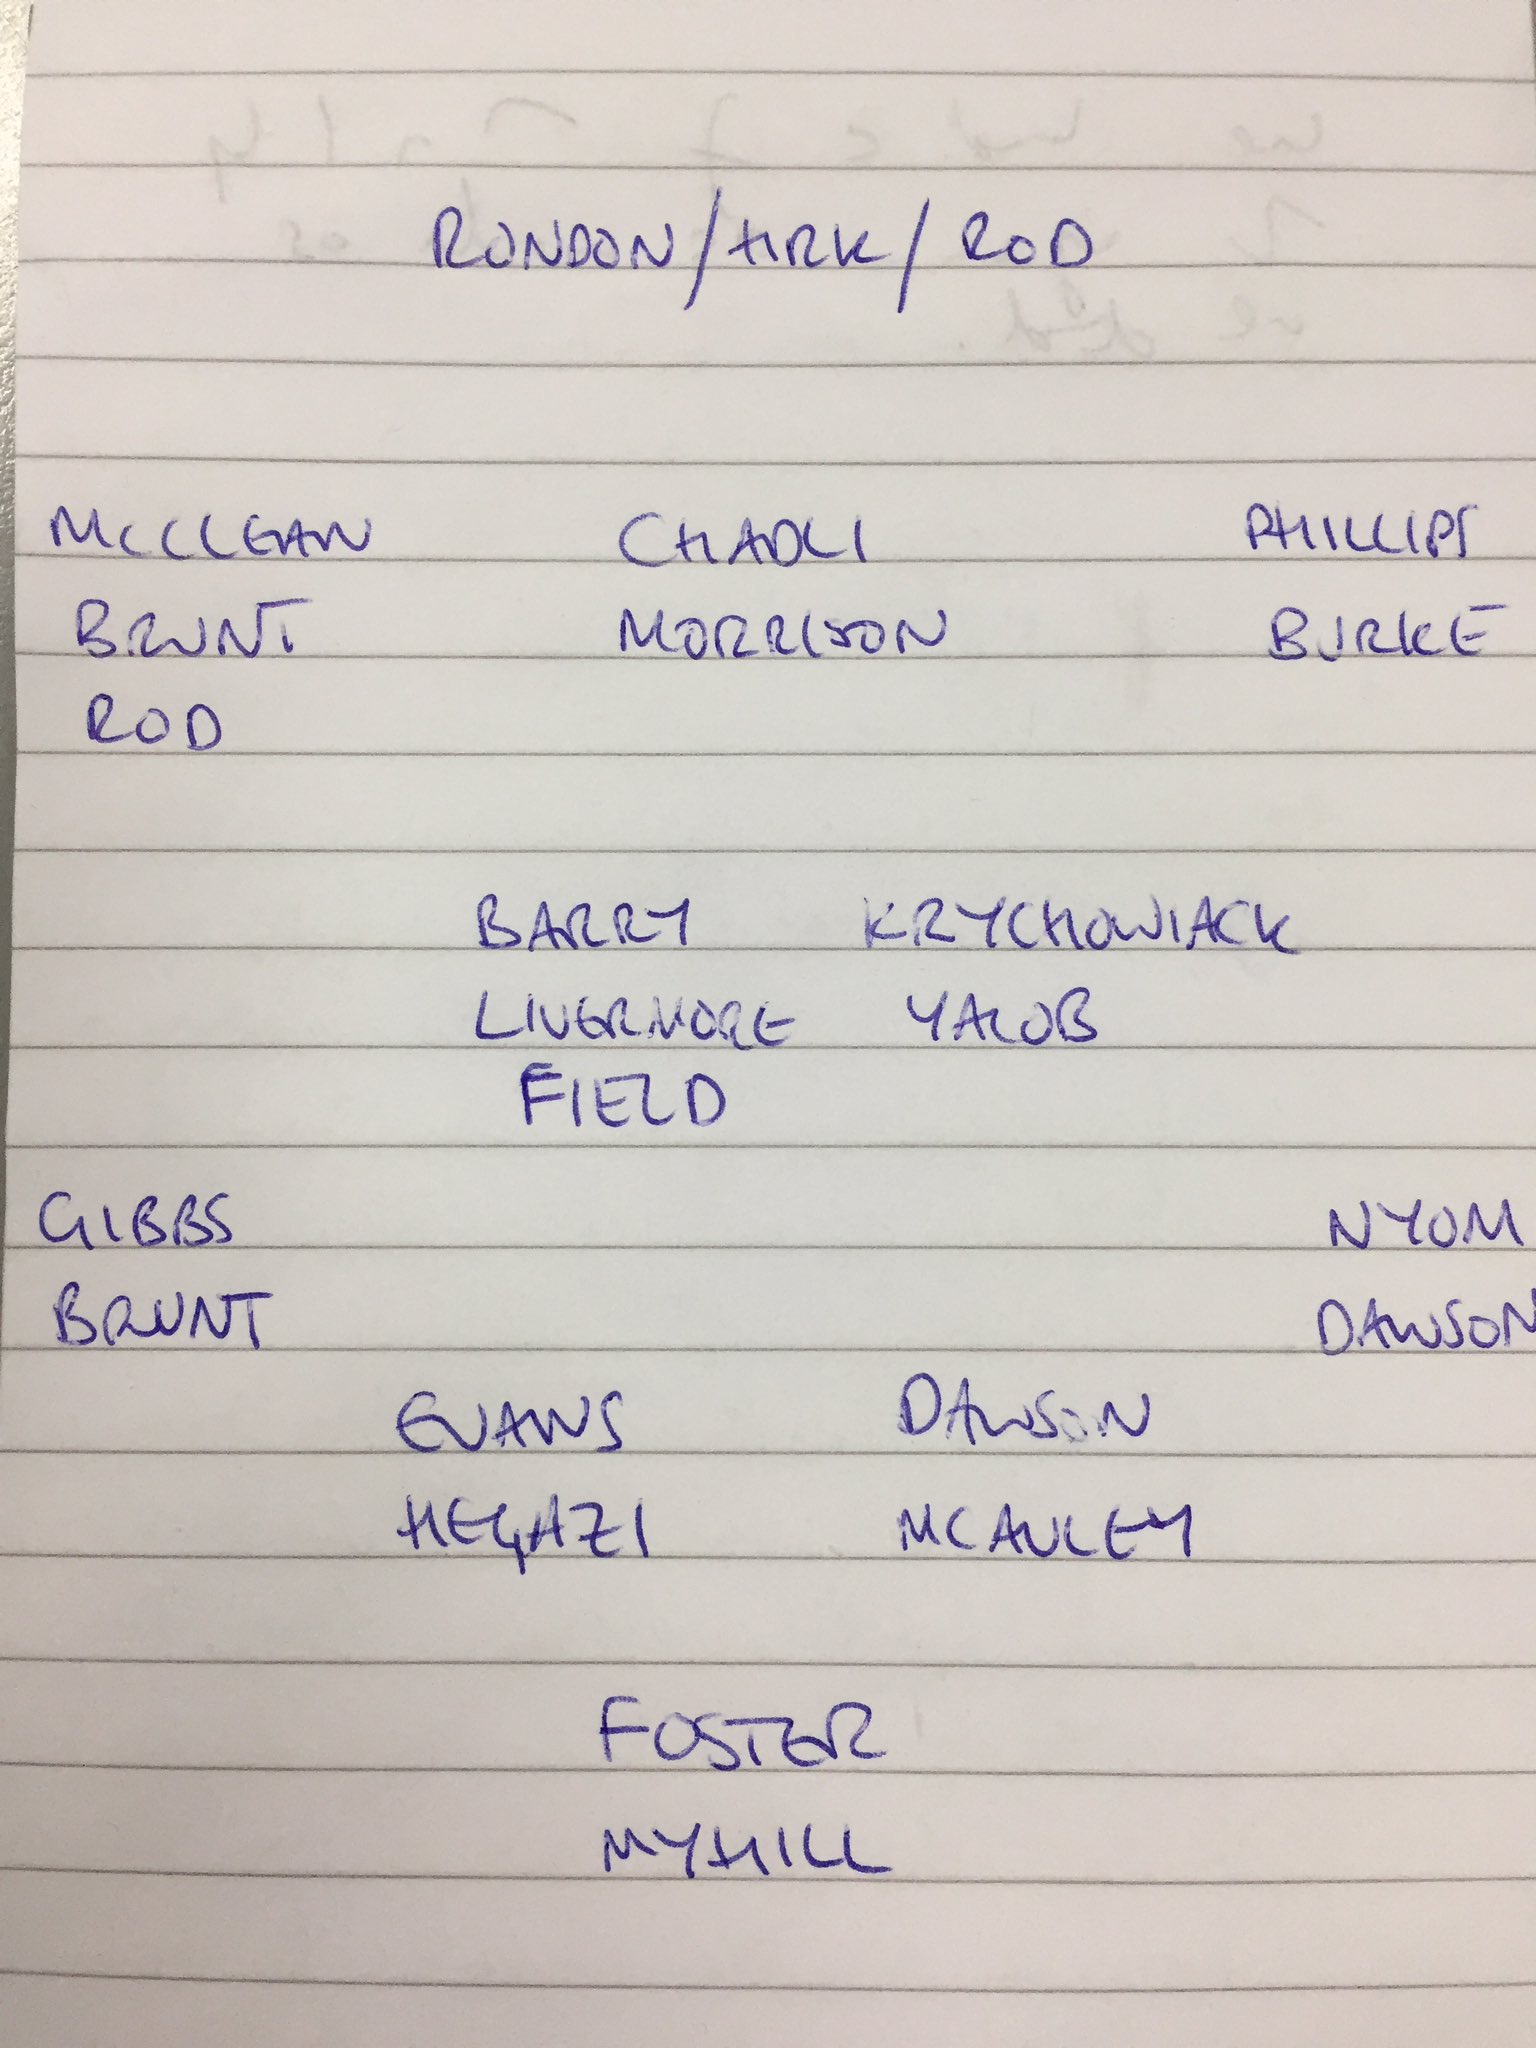 RONDON/HRK/ROD
MCCLEAN CHADLI PHILLIPS
BRUNT MORRISON BURKE
ROD
BARRY KRYCHOWIACK
LIVERMORE YACOB
FIELD
GIBBS NYOM
BRUNT DAWSON
EVANS DAWSON
HEGAZI MCAULEY
FOSTER
MYHILL